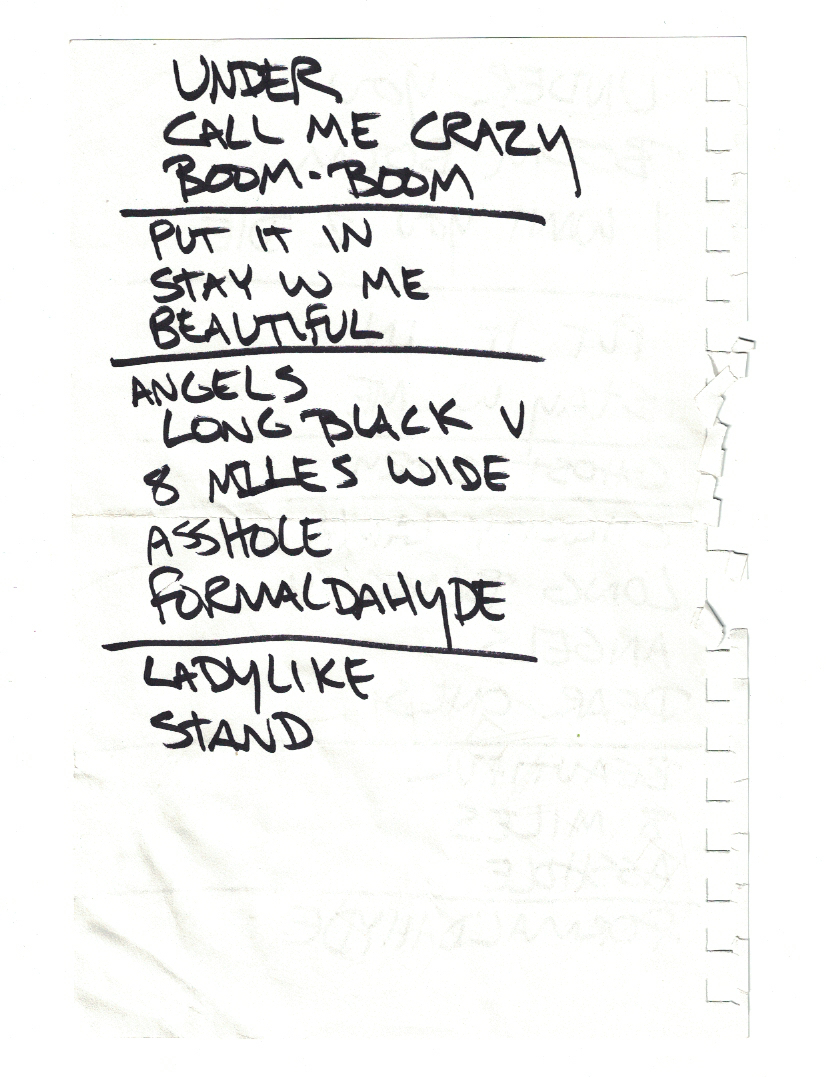 UNDER
CALL ME CRAZY
BOOM-BOOM
PUT IT IN
STAY W ME
BEAUTIFUL
ANGELS
LONG BLACK V
8 MILES WIDE
ASSHOLE
FORMALDAHYDE
LADYLIKE
STAND